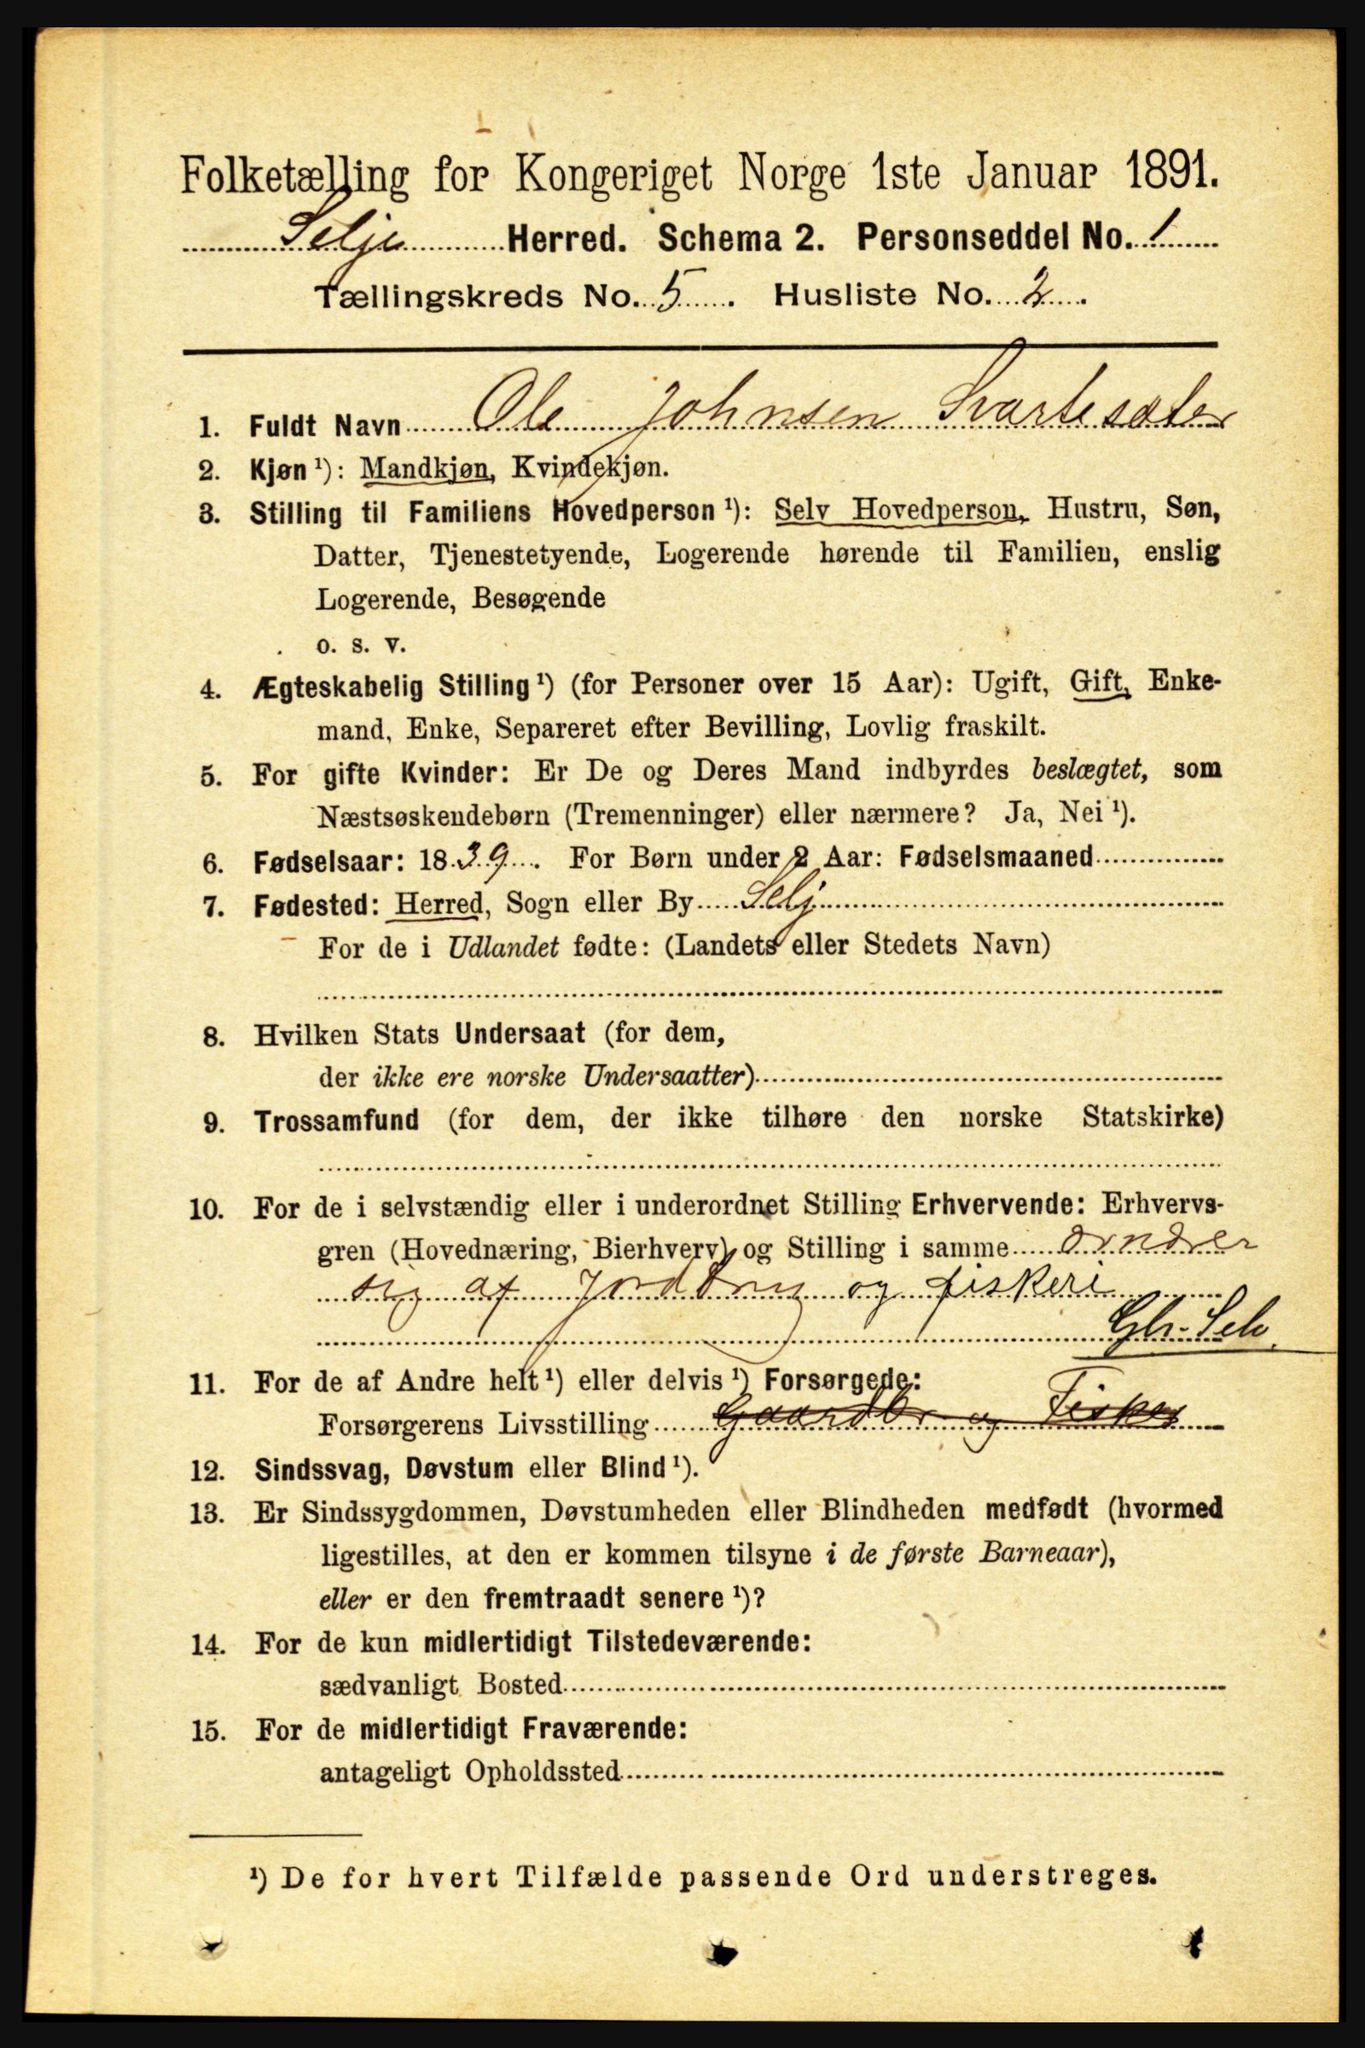 Folketælling for Kongeriget Norge 1ste Januar 1891.
Selje Herred. Schema 2. Personseddel No. 1
Tællingskreds No. 5. Husliste No. 2.
1. Fuldt Navn Ole Johnsen Svartesæter
2. Kjøn ¹): Mandkjøn, Kvindekjøn.
3. Stilling til Familiens Hovedperson ¹): Selv Hovedperson, Hustru, Søn,
Datter, Tjenestetyende, Logerende hørende til Familien, enslig
Logerende, Besøgende
o. s. v.
4. Ægteskabelig Stilling ¹) (for Personer over 15 Aar): Ugift, Gift, Enke-
mand, Enke, Separeret efter Bevilling, Lovlig fraskilt.
5. For gifte Kvinder: Er De og Deres Mand indbyrdes beslægtet, som
Næstsøskendebørn (Tremenninger) eller nærmere? Ja, Nei ¹).
6. Fødselsaar: 1839. For Børn under 2 Aar: Fødselsmaaned
7. Fødested: Herred, Sogn eller By Selj
For de i Udlandet fødte: (Landets eller Stedets Navn)
8. Hvilken Stats Undersaat (for dem,
der ikke ere norske Undersaatter)
9. Trossamfund (for dem, der ikke tilhøre den norske Statskirke)
10. For de i selvstændig eller i underordnet Stilling Erhvervende: Erhvervs-
gren (Hovednæring, Bierhverv) og Stilling i samme
sig af Jordbrug og fiskeri
Gbr. Selv.
11. For de af Andre helt ¹) eller delvis ¹) Forsørgede:
Forsørgerens Livsstilling Gaardbr og Fisker
12. Sindssvag, Døvstum eller Blind ¹).
13. Er Sindssygdommen, Døvstumheden eller Blindheden medfødt (hvormed
ligestilles, at den er kommen tilsyne i de første Barneaar),
eller er den fremtraadt senere ¹)?
14. For de kun midlertidigt Tilstedeværende:
sædvanligt Bosted
15. For de midlertidigt Fraværende:
antageligt Opholdssted
¹) De for hvert Tilfælde passende Ord understreges.